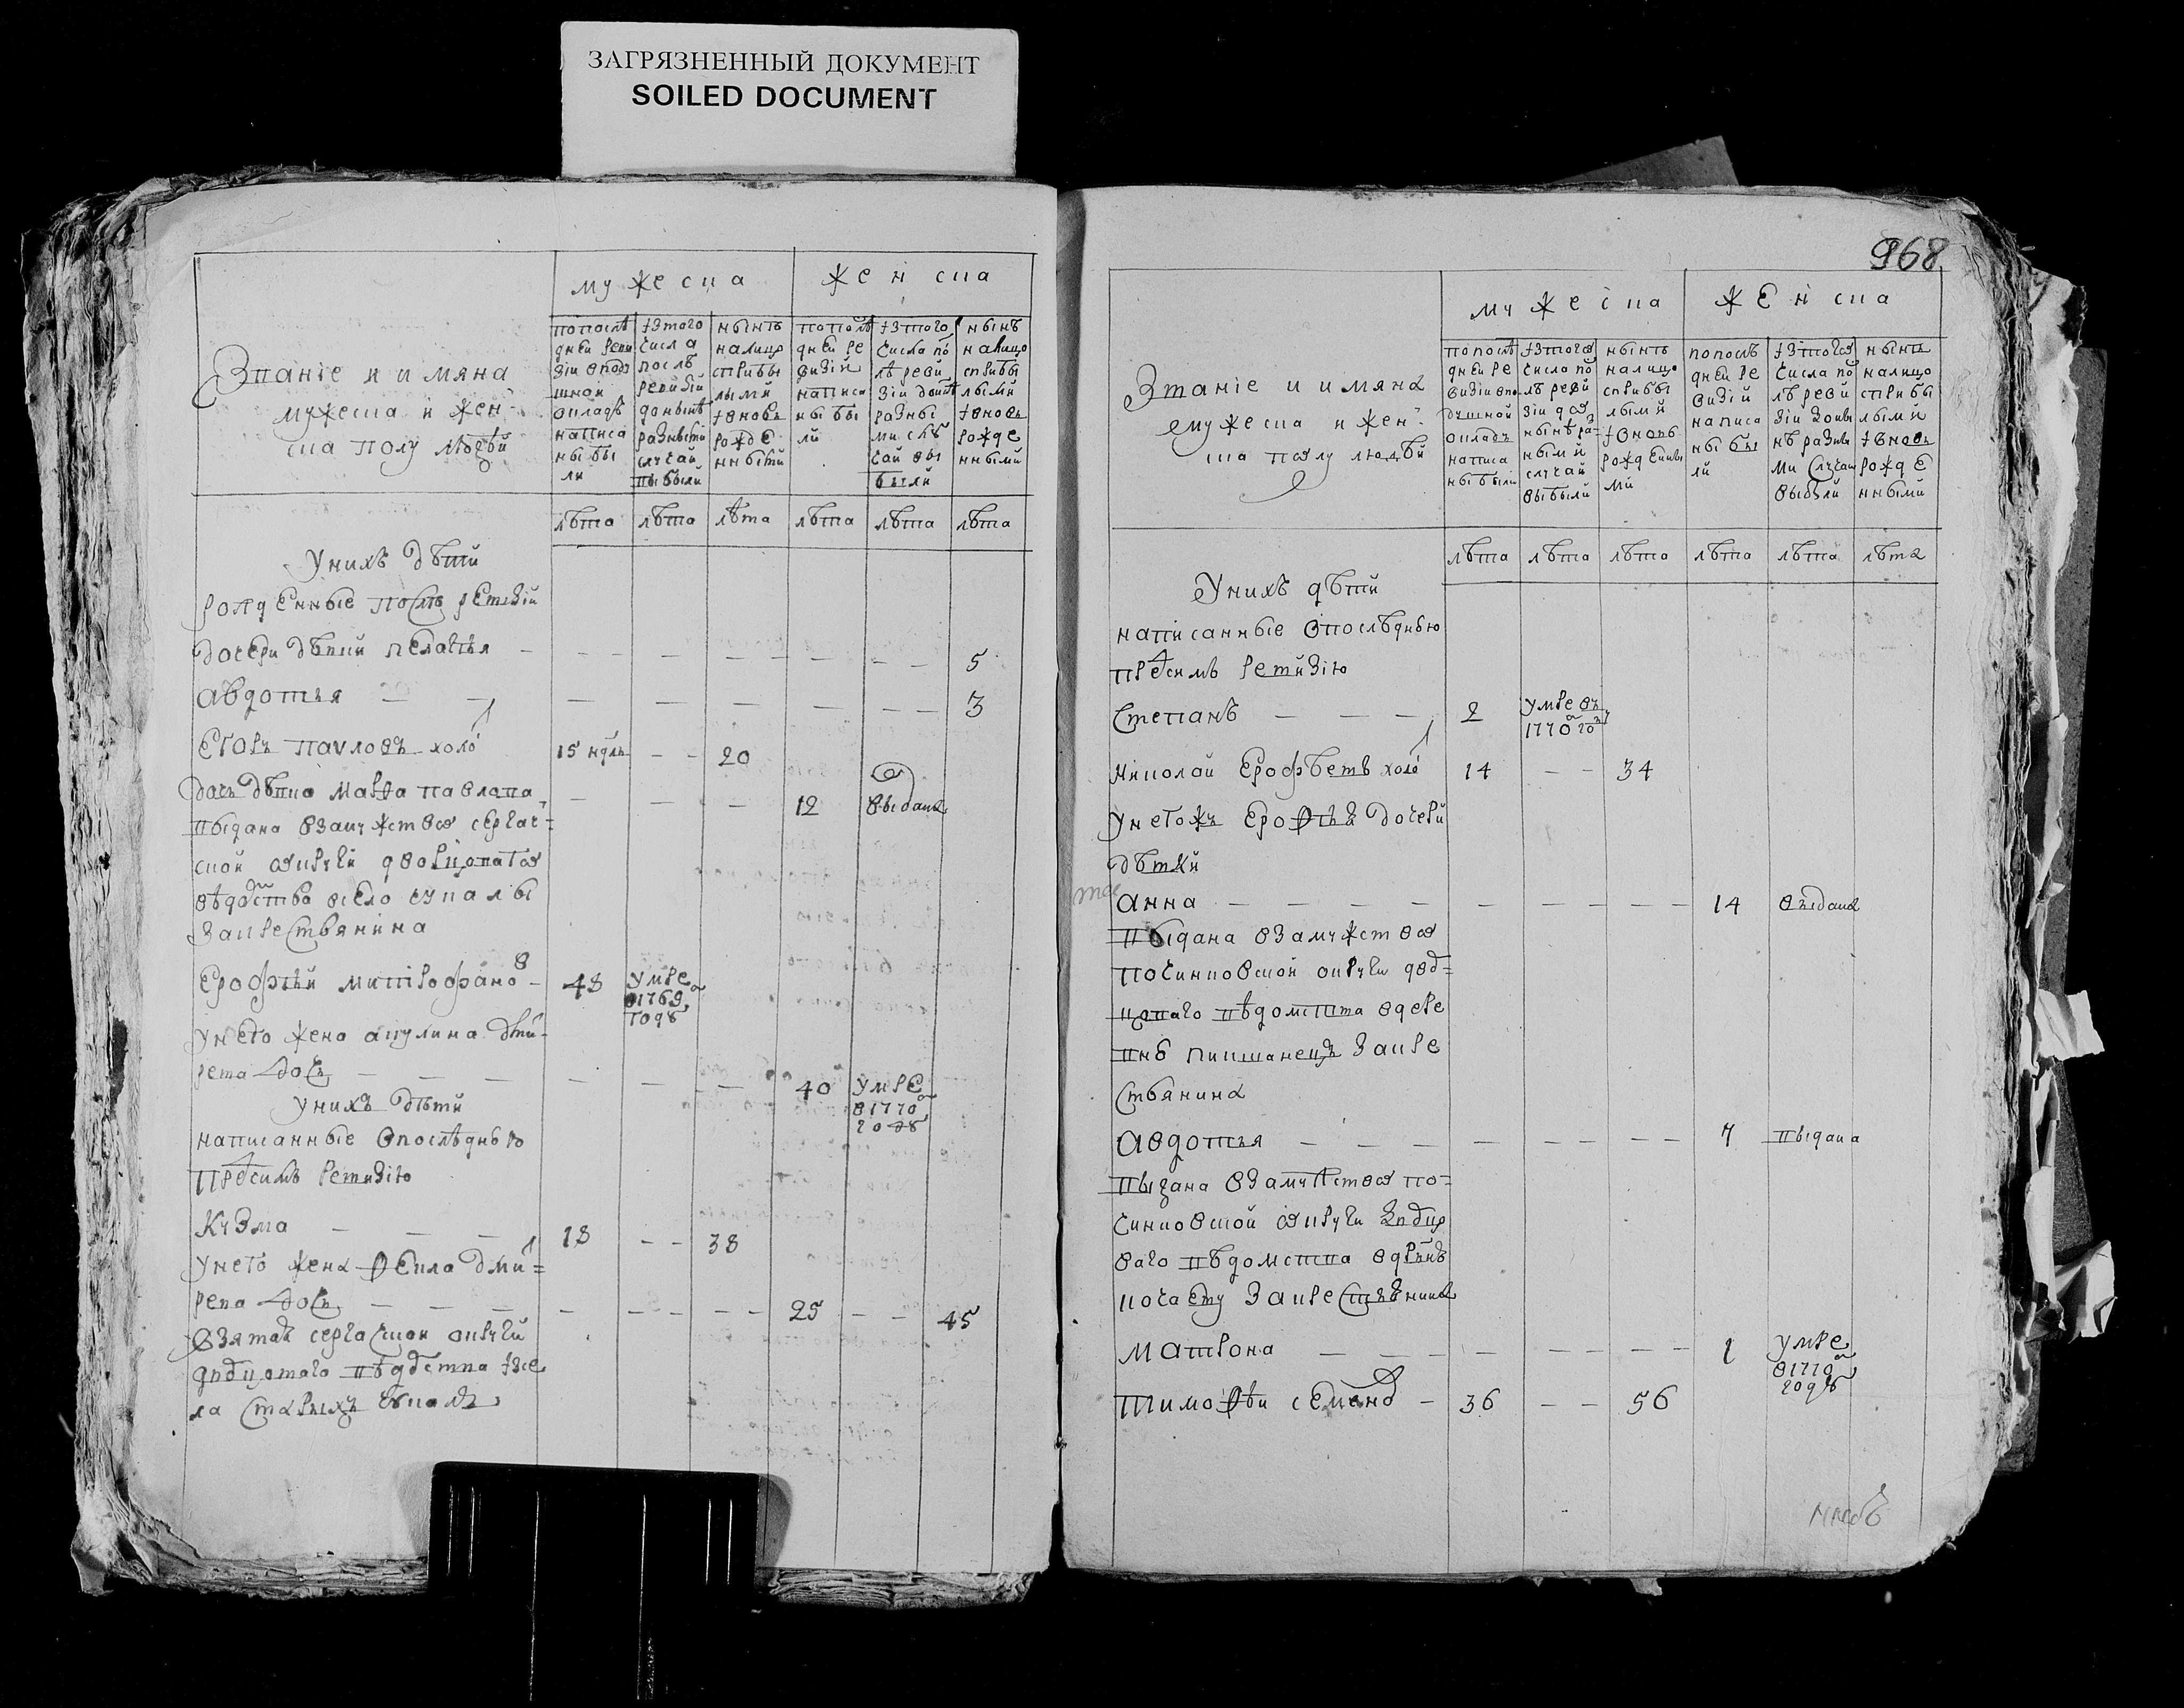 ЗАГРЯЗНЕННЫЙ ДОКУМЕНТ
SOILED DOCUMENT
мужеска
женска
Званіе и имяна
мужеска и жен-
ска полу людѣй
по послѣ
дней реви
зіи в под
шной
окладѣ
написа
ны бы
ли
из того
числа
послѣ
ревизіи
донынѣ
разными
случаи
выбыли
нынѣ
на лицо
с прибы
лыми
и вновь
рожде
нными
по послѣ
дней ре
визіи
написа
ны бы
ли
из того
числа по
лѣ реви
зіи донынѣ
разны
ми слу
чаи вы
были
нынѣ
на лицо
с прибы
лыми
и вновь
рожде
нными
лѣта лѣта лѣта лѣта лѣта лѣта
У них дѣти
рожденные послѣ ревизіи
дочери дѣвки пелагѣя — 5
авдотья — 3
Егоръ павловъ холо 15 20
дочь дѣвка марфа павлова 12 выдана
выдана в замужство сергач=
ской округи дворцоваго
вѣдоства в село
за крестьянина
Ерофѣй митрофанов 48 умре в 1769 годѣ
У него жена акулина дми-
рева дочь — 40 умре в 1770 годѣ
У нихъ дѣти
написанные в послѣднью
пред симъ ревизію
Кузма — 18 — 38
У него жена фекла дми=
рева дочь — 25 — 45
взята сергачской округи
дворцоваго вѣдоства из се
ла старыхъ
968
мужеска
женска
Званіе и имяна
мужеска и жен-
ска полу людѣй
по послѣ
дней ре
визіи в по
душной
окладъ
написа
ны были
из того
числа по
лѣ реви
зіи до
нынѣ раз
ными
случаи
выбыли
нынѣ
на лицо
с прибы
лыми
и вновь
рожденны
ми
по послѣ
дней ре
визіи
написа
ны бы
ли
из того
числа по
лѣ реви
зіи доны
нѣ разны
ми случаи
выбыли
нынѣ
на лицо
с прибы
лыми
и вновь
рожде
нными
лѣта лѣта лѣта лѣта лѣта лѣта
У нихъ дѣти
написанные в послѣднью
пред симъ ревизію
Степанъ — 2 умре въ 1770 год
Николай Ерофѣевъ холо 14 — 34
У него жъ Ерофѣя дочери
дѣвки
анна — 14 выдана
выдана в замужство
починковской округи двор=
цоваго вѣдомства в дере
вню за кре
стьянина
авдотья — 7 выдана
выдана в замужство по=
чинковской округи дворцо
ваго вѣдомства в дрвню
за крестьянина
матрона — 1 умре в 1770 годѣ
тимофѣй семенов — 36 — 56